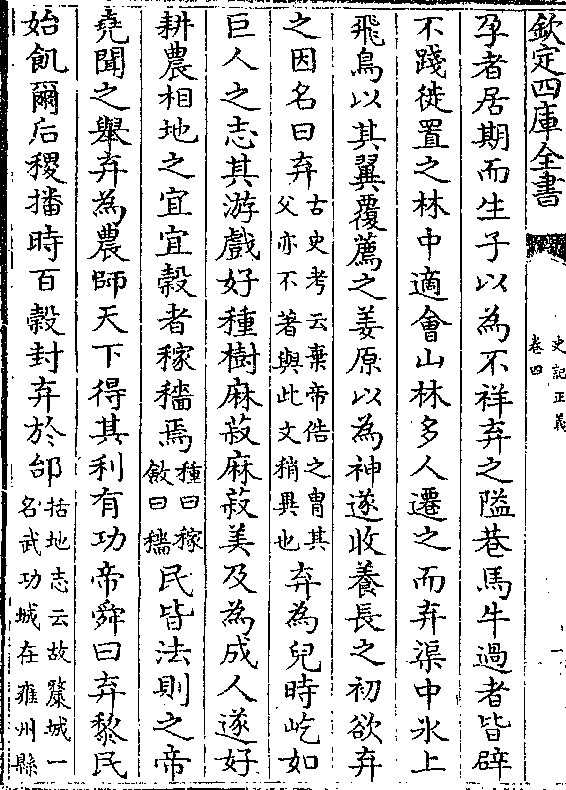 欽定四庫全書
史記正義
卷四
一
孕者居期而生子以為不祥弃之隘巷馬牛過者皆辟
不踐徙置之林中適會山林多人遷之而弃渠中氷上
飛鳥以其翼覆薦之姜原以為神遂收養長之初欲弃
之因名曰弃
古史考云棄帝俈之胄其
父亦不著與此文稍異也
弃為兒時屹如
巨人之志其游戲好種樹麻菽麻菽美及為成人遂好
耕農相地之宜宜穀者稼穡焉
種曰稼
斂曰穡
民皆法則之帝
堯聞之舉弃為農師天下得其利有功帝舜曰弃黎民
始飢爾后稷播時百穀封弃於邰
括地志云故斄城一
名武功城在雍州縣